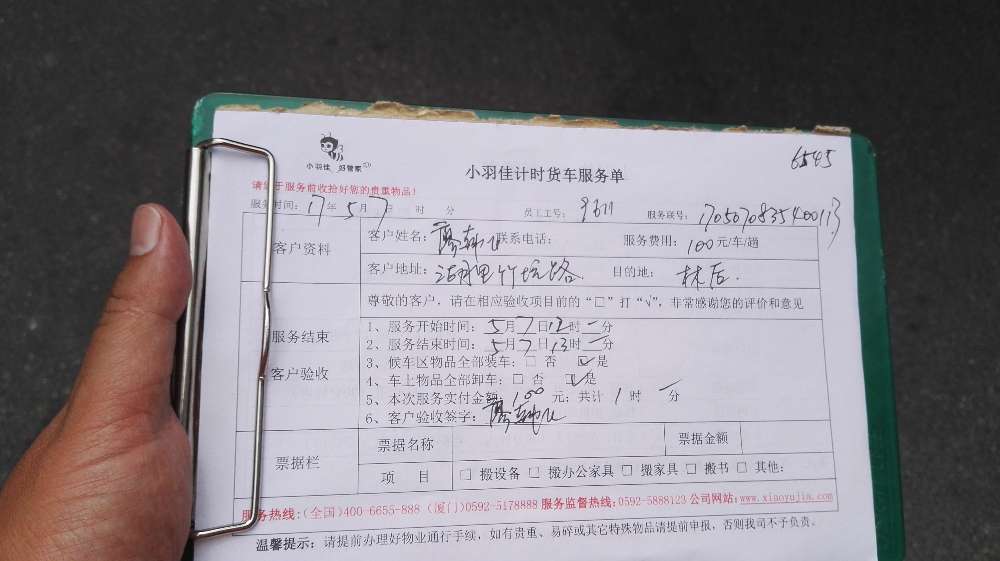 6545
小羽佳 好管家
小羽佳计时货车服务单
请您于服务前收拾好您的贵重物品!
服务时间: 17年 5月 7日 时 分 员工工号: 服务联号:
客户资料
客户姓名: 廖 联系电话: 服务费用: 100元/车/趟
客户地址: 湖里竹坑路 目的地: 林后.
服务结束
客户验收
尊敬的客户, 请在相应验收项目前的“□”打“√”, 非常感谢您的评价和意见
1、服务开始时间: 5月7日12时一分
2、服务结束时间: 5月7日13时一分
3、候车区物品全部装车: □ 否 ☑是
4、车上物品全部卸车: □ 否 ☑是
5、本次服务实付金额: 100 元; 共计 1 时 一分
6、客户验收签字: 廖
票据栏
票据名称 票据金额
项 目 □ 搬设备 □ 搬办公家具 □ 搬家具 □ 搬书 □ 其他:
服务热线:(全国)400-6655-888 (厦门)0592-5178888 服务监督热线:0592-5888123 公司网站:www.xiaoyujia.com
温馨提示: 请提前办理好物业通行手续, 如有贵重、易碎或其它特殊物品请提前申报, 否则我司不予负责。